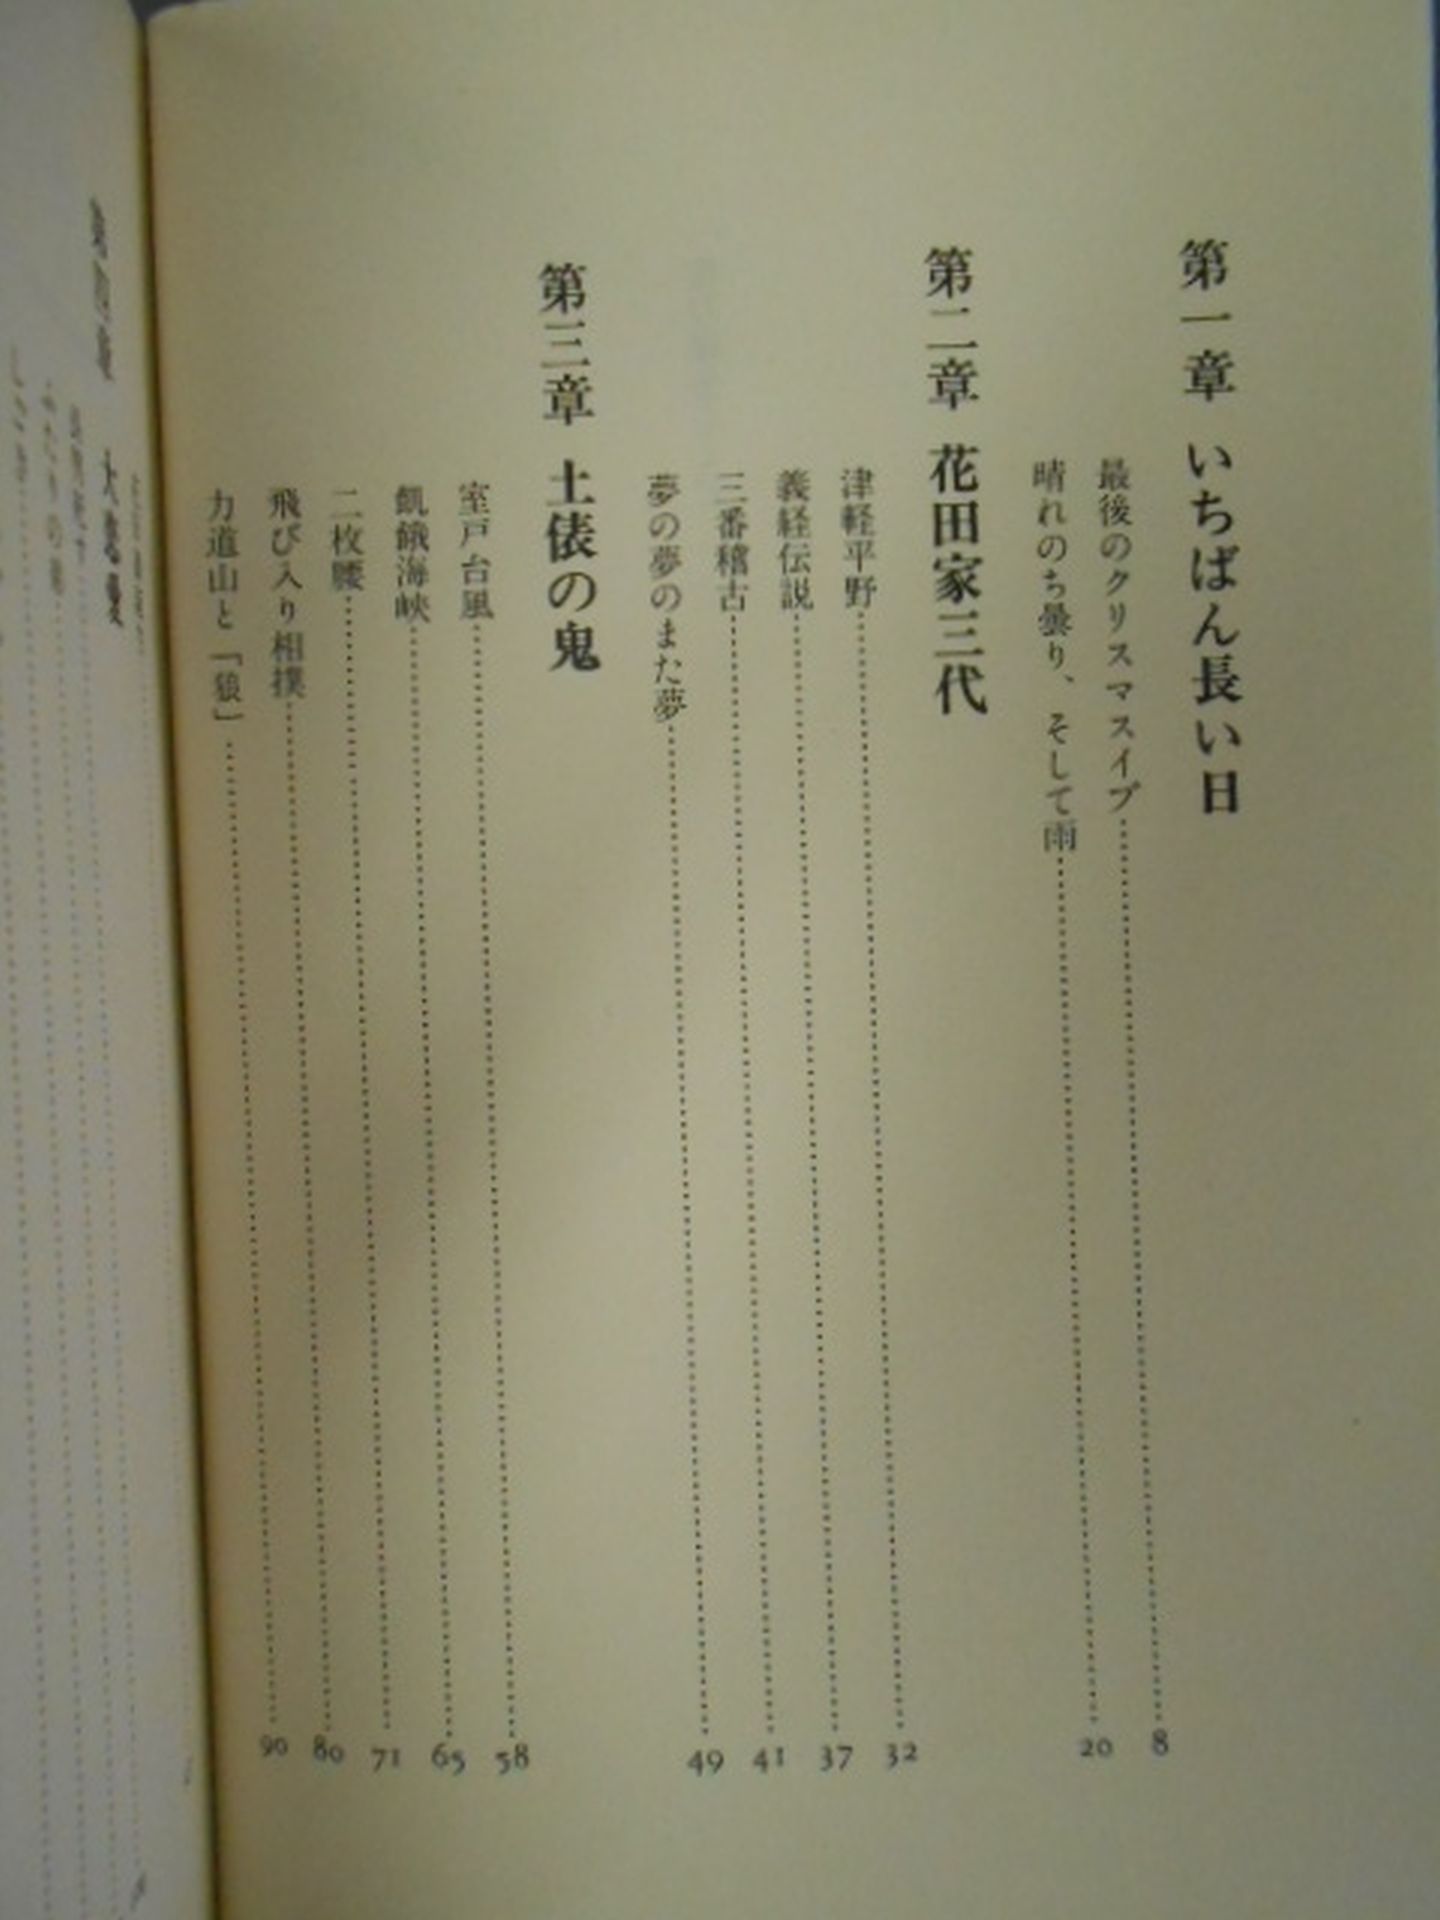 第一章 いちばん長い日
最後のクリスマスイブ……8
晴れのち曇り、そして雨……20
第二章 花田家三代
津軽平野……32
義経伝説……37
三番稽古……41
夢の夢のまた夢……49
第三章 土俵の鬼
室戸台風……58
飢餓海峡……65
二枚腰……71
飛び入り相撲……80
力道山と「狼」……90